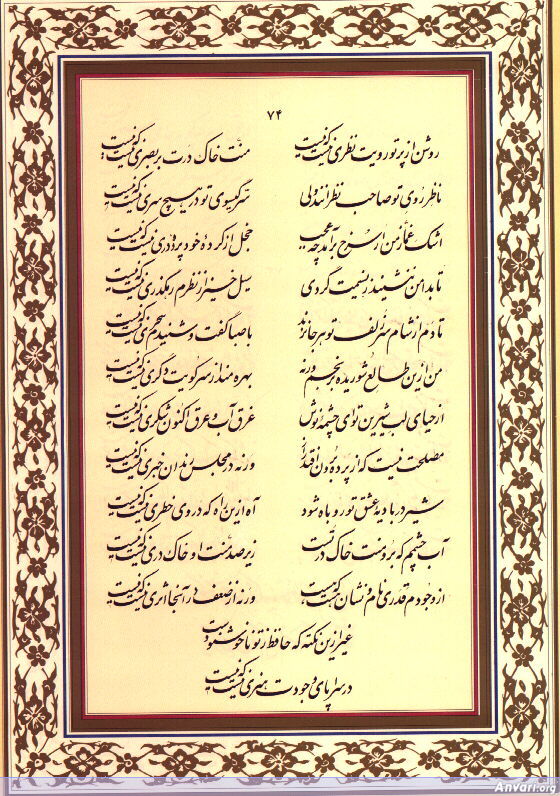 ۷۴
روشن از پرتو رویت نظری نیست که نیست منّت خاک درت بر بصری نیست که نیست
ناظر روی تو صاحب نظرانند ولی سرّ گیسوی تو در هیچ سری نیست که نیست
اشک غمّاز من ار سرخ برآمد چه عجب خجل از کرده خود پرده دری نیست که نیست
تا بدامن ننشیند ز نسیمت گردی سیل خیز از نظرم رهگذری نیست که نیست
تا دم از شام سر زلف تو هر جا نزند با صبا گفت و شنیدم سحری نیست که نیست
من ازین طالع شوریده برنجم ورنه بهره مند از سر کویت دگری نیست که نیست
از حیای لب شیرین تو ای چشمه نوش غرق آب و عرق اکنون شکری نیست که نیست
مصلحت نیست که از پرده برون افتد راز ورنه در مجلس رندان خبری نیست که نیست
شیر در بادیه عشق تو روباه شود آه ازین راه که در وی خطری نیست که نیست
آب چشمم که برو منت خاک در تست زیر صد منت او خاک دری نیست که نیست
از وجودم قدری نام و نشان هست که هست ورنه از ضعف در آنجا اثری نیست که نیست
غیر ازین نکته که حافظ ز تو ناخوشنودست
در سراپای وجودت هنری نیست که نیست
Anvari.org